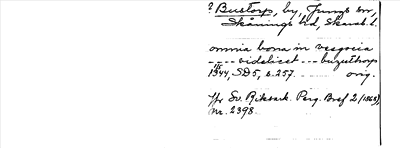 ? Bustorp, by, Ljungs sn,
Skånings hd, Skarab. l.
omnia bona in vesgocia
---- videlicet --- buzæthorp
1344, SD 5, s. 257. orig.
Jfr Sv. Riksark. Perg. Bref 2 (1868),
nr. 2398.